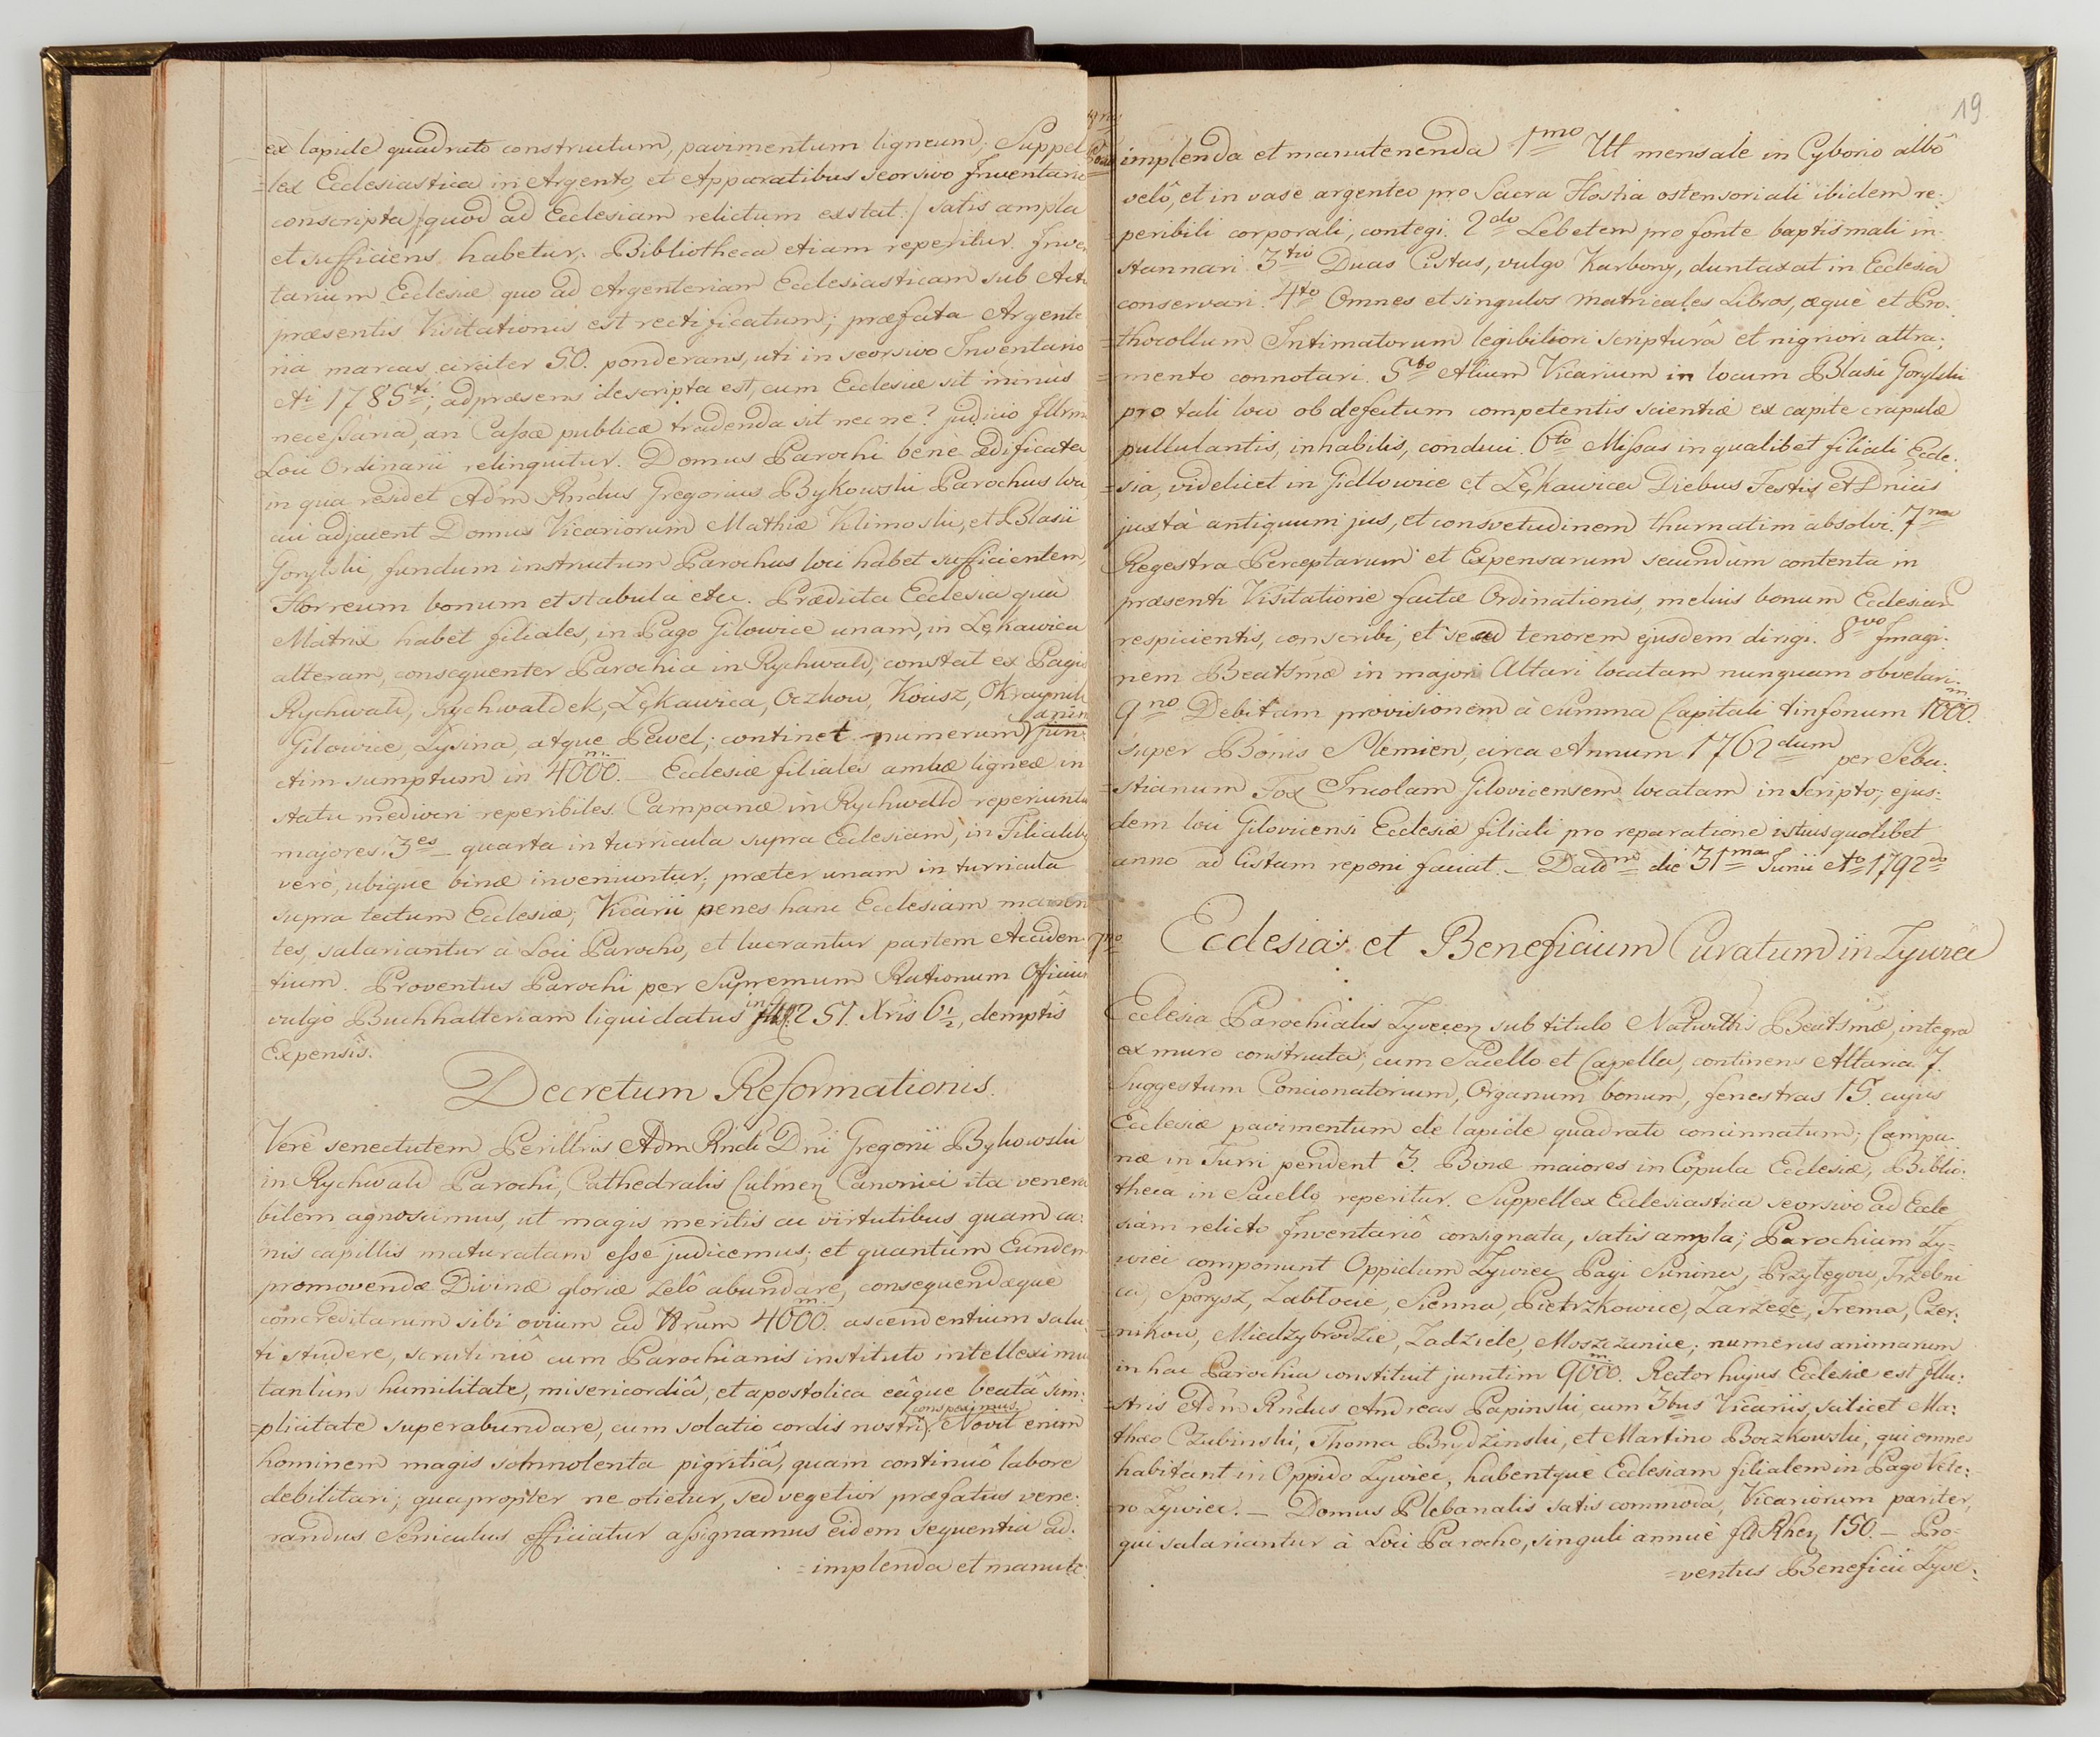 ex lapide quadrato constructum, pavimentum ligneum, Suppel
=lex Ecclesiastica in Argento, et Apparatibus seorsivo Inventario
conscripta /:quod ad Ecclesiam relictum exstat:/ satis ampla
et sufficiens habetur. Bibliotheca etiam reperitur. Inven
tarium Ecclesiæ quo ad Argenteriam Ecclesiasticam sub Actu
præsentis Visitationis est rectificatum; præfata Argente
ria marcas circiter 50. ponderans, uti in seorsivo Inventario
Ai 1785ti; adpræsens descripta est, cum Ecclesiæ sit minùs
necessaria, an Cassæ publicæ tradenda sit nec ne? judicio Illrmi
Loci Ordinarii relinquitur. Domus Parochi bènè ædificata
in qua residet Adm Rndus Gregorius Bykowski Parochus loci
cui adjacent Domus Vicariorum Mathiæ Klimoski, et Blasii
Gorylski, fundum instructum Parochus loci habet sufficientem,
Horreum bonum et stabula etc. Prædicta Ecclesia quà
Matrix habet filiales, in Pago Gilowice unam, in Lękawica
alteram, consequenter Parochia in Rychwald, constat ex Pagis
Rychwald, Rychwaldek, Lękawica, Oczkow, Kocisz, Okraynik
Gilowice, Łysina, atque Pewel; continet numerum anim jun=
ctim sumptum in 4000. m. — Ecclesiæ filiales ambæ ligneæ in
statu mediocri reperibiles. Campanæ in Rychwald reperiuntu
majores 3es — quarta in turricula supra Ecclesiam, in Filialib
verò, ubique binæ inveniuntur, præter unam in turricula
supra tectum Ecclesiæ; Vicarii penes hanc Ecclesiam manen
tes, salariantur à Loci Parocho, et lucrantur partem Acciden
=tium. Proventus Parochi per Supremum Rationum Officium
vulgò Buchhalteriam liquidatus in 251. Xris 6½, demptis
Expensis.
Decretum Reformationis.
Verè senectutem Perillris Adm Rndi Dni Gregorii Bykowski
in Rychwald Parochi, Cathedralis Culmen Canonici ita venera
bilem agnoscimus, ut magis meritis ac virtutibus quam ca=
nis capillis maturatam esse judicemus; et quantum Eundem
promovendæ Divinæ gloriæ zelô abundare, consequendæque
concreditarum sibi ovium ad Nrum 4000. m. ascendentium salu
ti studere, scrutiniô cum Parochianis instituto intelleximus
tantùm humilitate, misericordiâ, et apostolica eâque beatâ sim=
=plicitate superabundare, cum solatio cordis nostri conspeximus. Novit enim
hominem magis somnolenta pigritiâ, quam continuô labore
debilitari; quapropter ne otietur, sed vegetior præfatus vene=
randus Seniculus efficiatur assignamus eidem sequentia ad=
=implenda et manute=
19
implenda et manutenenda 1mo Ut mensale in Cyborio albô
velô, et in vase argenteo pro Sacra Hostia ostensoriali ibidem re=
=peribili corporali, contegi. 2do Lebetem pro fonte baptismali in=
stannari. 3tio Duas Cistas, vulgo Karbony, duntaxat in Ecclesia
conservari. 4to Omnes et singulos Matricales Libros, æquè et Pro=
=thocollum Intimatorum legibiliori scripturâ et nigriori attra=
=mento connotari. 5to Alium Vicarium in locum Blasii Gorylski
pro tali loco ob defectum competentis scientiæ ex capite crapulæ
pullulantis, inhabilis, conduci. 6to Missas in qualibet filiali Eccle=
=sia, videlicet in Gillowice et Lękawica Diebus Festis et Dnicis
juxtà antiquum jus, et consvetudinem thurnatim absolvi. 7mo
Regestra Perceptarum et Expensarum secundùm contenta in
præsenti Visitatione factæ Ordinationis, melius bonum Ecclesiæ
respicientis, conscribi, et secd tenorem ejusdem dirigi. 8vo Imagi=
nem Beatsmæ in majori Altari locatam nunquam obvelari.
9no Debitam provisionem à summa Capitali tinfonum 1000. m.
super Bonis Slemien, circa Annum 1762dum per Seba=
=stianum Fox Incolam Gilovicensem locatam in Scripto, ejus=
dem loci Gilovicensi Ecclesiæ filiali pro reparatione istius quolibet
anno ad Cistam reponi faciat. — Datd die 31ma Junii Ao 1792do
7mo Ecclesia et Beneficium Curatum in Zywiec
Ecclesia Parochialis Zyvecen sub titulo Nativittis Beatsmæ, integra
ex muro constructa, cum Sacello et Capella, continens Altaria 7.
Suggestum Concionatorium, Organum bonum, fenestras 15. cujus
Ecclesiæ pavimentum de lapide quadrato concinnatum; Campa=
næ in Turri pendent 3. Binæ maiores in Copula Ecclesiæ, Biblio=
theca in Sacello reperitur. Suppellex Ecclesiastica seorsivo ad Eccle
siam relicto Inventariô consignata, satis ampla; Parochiam Zy=
wiec componunt Oppidum Zywiec Pagi Sunina, Przylęgow, Trzebni
ca, Sporysz, Zabłocie, Sienna, Pietrzkowice, Zarzecze, Trema, Czer=
=nikow, Miedzybrodzie, Zadziele, Moszczanice; numerus animarum
in hac Parochia constituit junctim 9000. m. Rector hujus Ecclesiæ est Illu=
=stris Adm Rndus Andreas Papinski, cum 3bus Vicariis, scilicet Ma=
thæo Czubinski, Thoma Brydzinski, et Martino Boczkowski, qui omnes
habitant in Oppido Zywiec, habentque Ecclesiam filialem in Pago Vete=
ro Zywiec. — Domus Plebanalis satis commoda, Vicariorum pariter,
qui salariantur à Loci Parocho, singuli annuè fl Rhen 150. — Pro=
=ventus Beneficii Zyve=